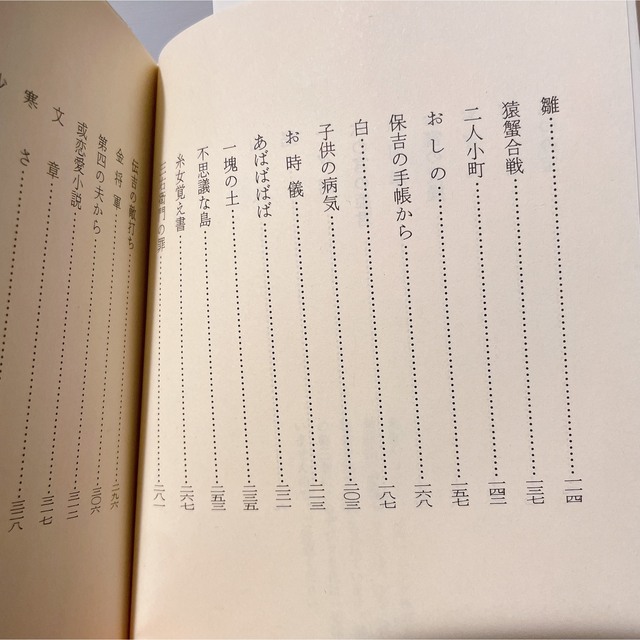 雛……………一一四
猿蟹合戦……………一三七
二人小町……………一四二
おしの……………一五七
保吉の手帳から……………一六八
白……………一八七
子供の病気……………二〇三
お時儀……………二一三
あばばばば……………二二一
一塊の土……………二三五
不思議な島……………二五三
糸女覚え書……………二六七
三右衛門の罪……………二八一
伝吉の敵打ち……………
金将軍……………二九六
第四の夫から……………三〇六
或恋愛小説……………三一二
文章……………三一七
寒さ……………三二八